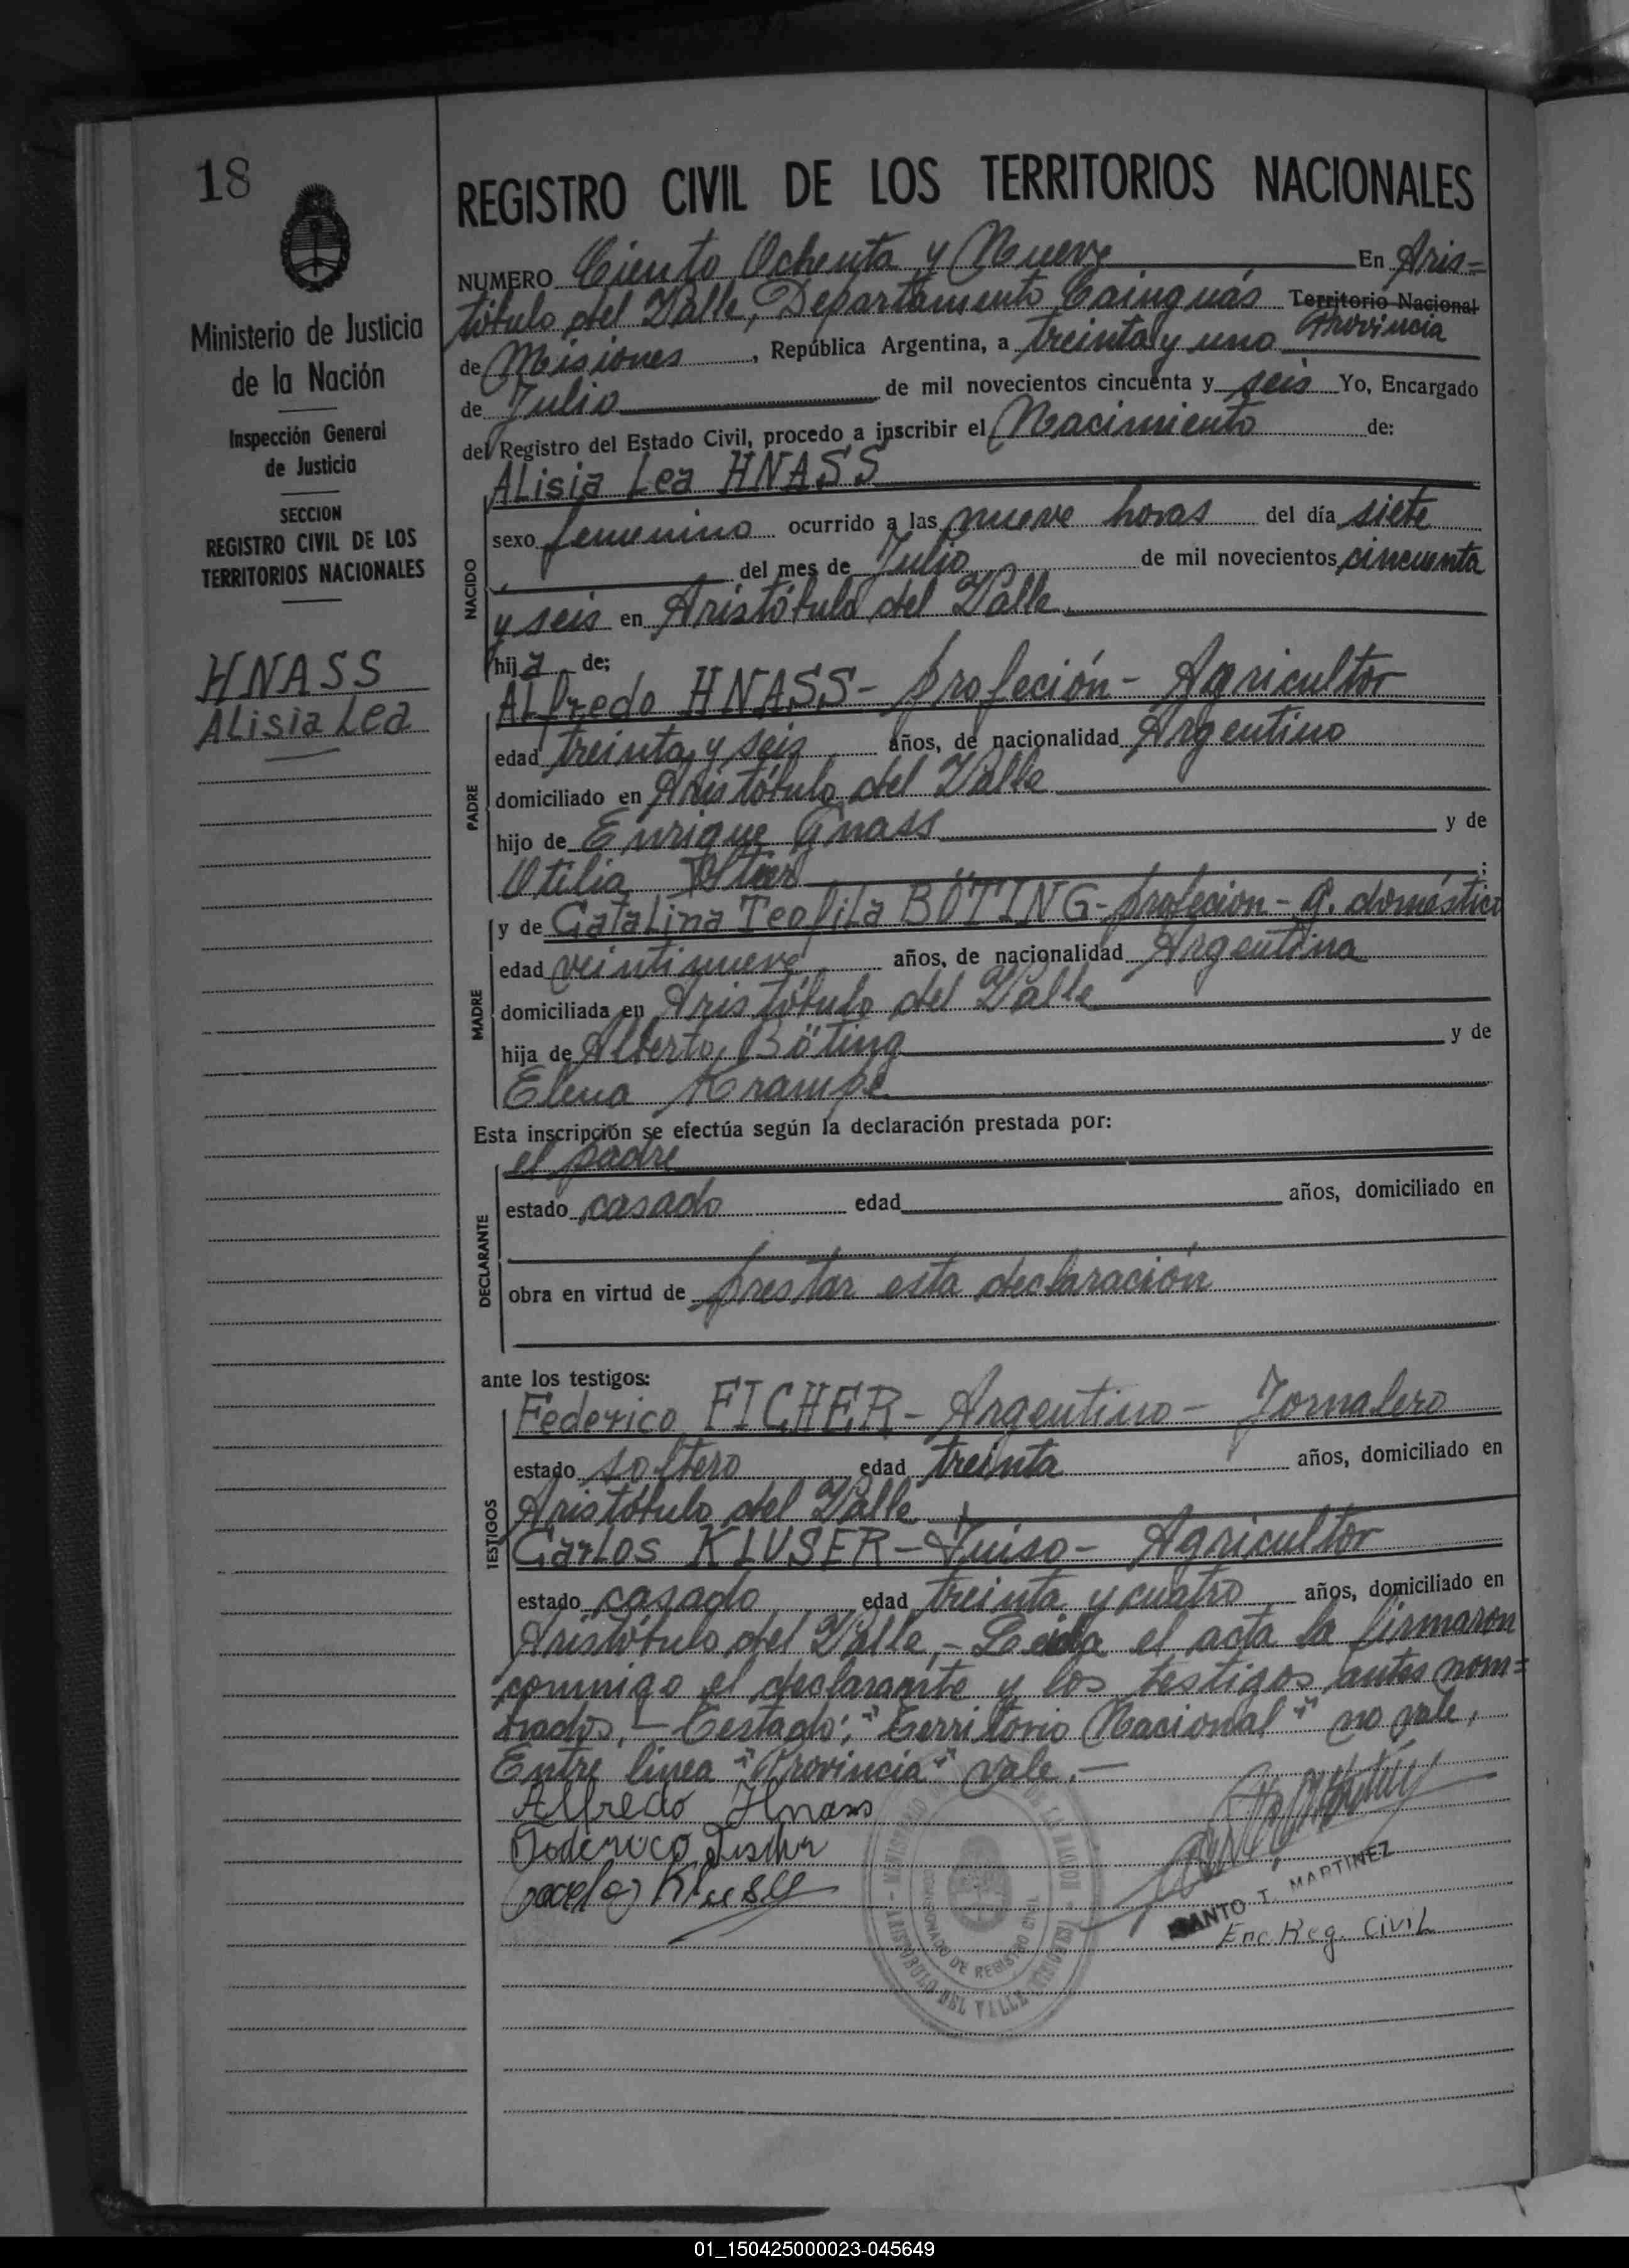 18
Ministerio de Justicia
de la Nación
Inspección General
de Justicia
SECCION
REGISTRO CIVIL DE LOS
TERRITORIOS NACIONALES
HNASS
ALisia Lea
REGISTRO CIVIL DE LOS TERRITORIOS NACIONALES
NUMERO Ciento Ochenta y Nueve En Aris=
tóbulo del Valle, Departamento Cainguás Territorio Nacional
Provincia
de Misiones, República Argentina, a treinta y uno
de Julio de mil novecientos cincuenta y seis Yo, Encargado
del Registro del Estado Civil, procedo a inscribir el Nacimiento de:
NACIDO
ALisia Lea HNASS
sexo femenino ocurrido a las nueve horas del día siete
del mes de Julio de mil novecientos cincuenta
y seis en Aristóbulo del Valle
hija de:
PADRE
ALfredo HNASS - profeción - Agricultor
edad treinta y seis años, de nacionalidad Argentino
domiciliado en Aristóbulo del Valle
hijo de Enrique Gnass y de
Otilia
MADRE
y de CataLina TeofiLa BÖTING - profecion - q. doméstico
edad veintinueve años, de nacionalidad Argentina
domiciliada en Aristóbulo del Valle
hija de Alberto Böting y de
Elena Krampe
Esta inscripción se efectúa según la declaración prestada por:
DECLARANTE
el padre
estado casado edad años, domiciliado en
obra en virtud de prestar esta declaración
ante los testigos:
TESTIGOS
Federico FICHER - Argentino - Jornalero
estado soltero edad treinta años, domiciliado en
Aristóbulo del Valle
CarLos KLUSER - Suiso - Agricultor
estado casado edad treinta y cuatro años, domiciliado en
Aristóbulo del Valle, - Leida el acta la firmaron
conmigo el declarante y los testigos antes nom=
brados. - Testado: "Territorio Nacional" no vale,
Entre linea "Provincia" vale. -
Alfredo Hnass
SANTO T. MARTINEZ
Enc. Reg. CiviL
ARISTOBULO DEL VALLE
DE REGISTRO CIVIL
01_150425000023-045649